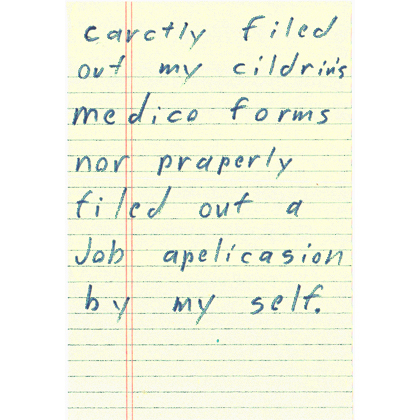 carctly filed
out my cildrin's
medico forms
nor praperly
filed out a
Job apelicasion
by my self.